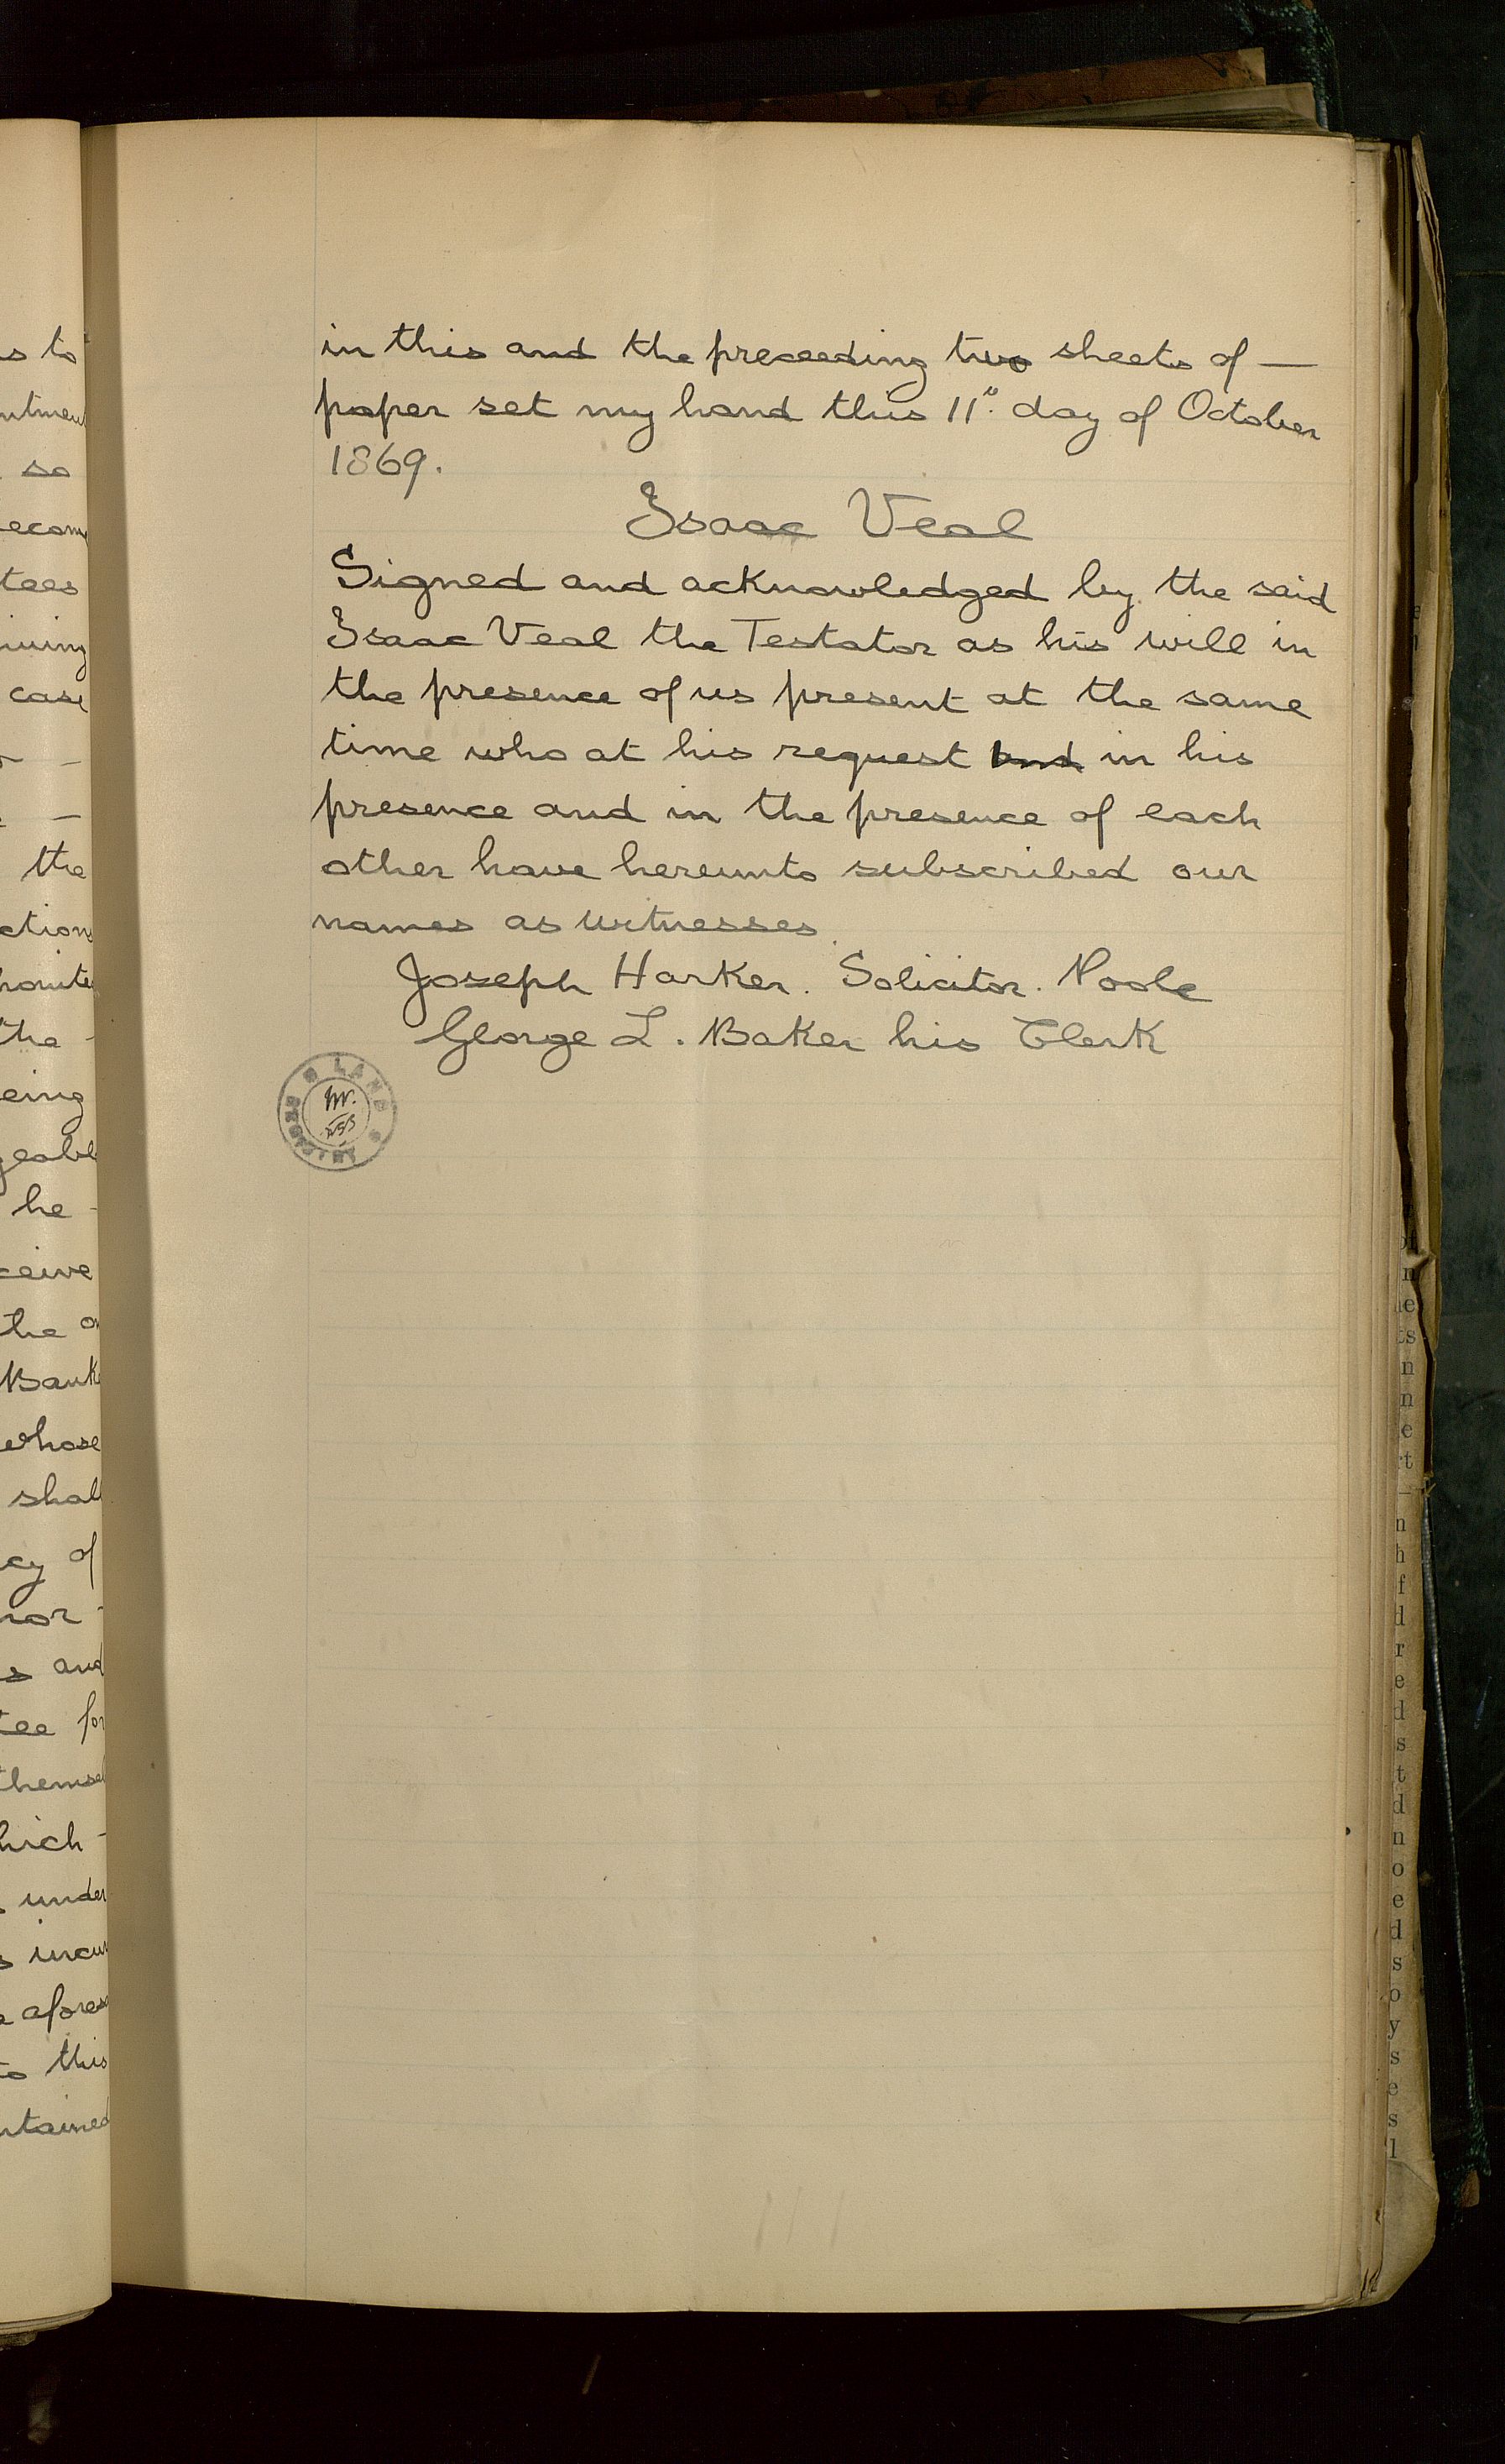 in this and the preceeding two sheets of —
paper set my hand this 11º. day of October
1869.
Isaac Veal
Signed and acknowledged by the said
Isaac Veal the Testator as his will in
the presence of us present at the same
time who at his request and in his
presence and in the presence of each
other have hereunto subscribed our
names as witnesses.
Joseph Harker. Solicitor. Poole
George L. Baker his Clerk
LAND
s to
so
tees
case
the
the
he
the
whose
shall
of
and
under
this